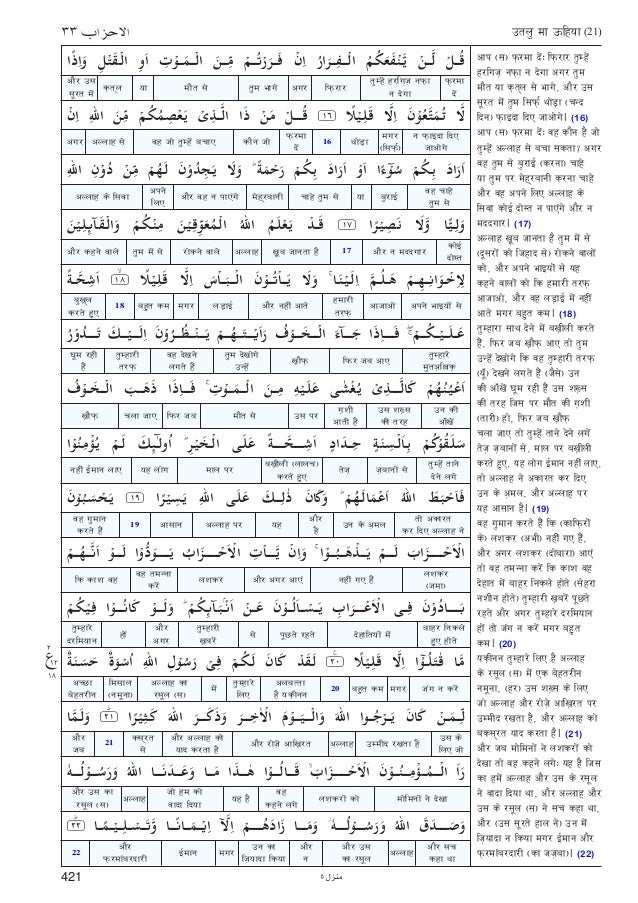 الاحزاب ٣٣
उतलु मा ऊहिया (21)
قُلْ لَّنْ يَّنْفَعَكُمُ الْفِرَارُ اِنْ فَرَرْتُمْ مِّنَ الْمَوْتِ اَوِ الْقَتْلِ وَاِذًا
फ़रमा दें तुम्हें हरगिज़ नफ़ा न देगा फ़िरार अगर तुम भागे मौत से या क़त्ल और उस सूरत में
لَّا تُمَتَّعُوْنَ اِلَّا قَلِيْلًا ١٦ قُلْ مَنْ ذَا الَّذِيْ يَعْصِمُكُمْ مِّنَ اللّٰهِ اِنْ
न फ़ाइदा दिए जाओगे मगर (सिर्फ़) थोड़ा 16 फ़रमा दें कौन जो वह जो तुम्हें बचाए अल्लाह से अगर
اَرَادَ بِكُمْ سُوْٓءًا اَوْ اَرَادَ بِكُمْ رَحْمَةً ؕ وَلَا يَجِدُوْنَ لَهُمْ مِّنْ دُوْنِ اللّٰهِ
वह चाहे तुम से बुराई या चाहे तुम से मेह्रबानी और वह न पाएंगे अपने लिए अल्लाह के सिवा
وَلِيًّا وَّلَا نَصِيْرًا ١٧ قَدْ يَعْلَمُ اللّٰهُ الْمُعَوِّقِيْنَ مِنْكُمْ وَالْقَآئِلِيْنَ
कोई दोस्त और न मददगार 17 खूब जानता है अल्लाह रोकने वाले तुम में से और कहने वाले
لِاِخْوَانِهِمْ هَلُمَّ اِلَيْنَا ۚ وَلَا يَاْتُوْنَ الْبَاْسَ اِلَّا قَلِيْلًا ١٨ اَشِحَّةً
अपने भाइयों से आजाओ हमारी तरफ़ और नहीं आते लड़ाई मगर बहुत कम 18 बुख़्ल करते हुए
عَلَيْكُمْ ۖ فَاِذَا جَآءَ الْخَوْفُ رَاَيْتَهُمْ يَنْظُرُوْنَ اِلَيْكَ تَدُوْرُ
तुम्हारे मुतअल्लिक़ फिर जब आए ख़ौफ़ तुम देखोगे उन्हें वह देखने लगते हैं तुम्हारी तरफ़ घूम रही हैं
اَعْيُنُهُمْ كَالَّذِيْ يُغْشٰى عَلَيْهِ مِنَ الْمَوْتِ ۚ فَاِذَا ذَهَبَ الْخَوْفُ
उन की आँखें उस शख़्स की तरह ग़शी आती है उस पर मौत से फिर जब चला जाए ख़ौफ़
سَلَقُوْكُمْ بِاَلْسِنَةٍ حِدَادٍ اَشِحَّةً عَلَى الْخَيْرِ ؕ اُولٰٓئِكَ لَمْ يُؤْمِنُوْا
तुम्हें ताने देने लगे ज़बानों से तेज़ बख़ीली (लालच) करते हुए माल पर यह लोग नहीं ईमान लाए
فَاَحْبَطَ اللّٰهُ اَعْمَالَهُمْ ؕ وَكَانَ ذٰلِكَ عَلَى اللّٰهِ يَسِيْرًا ١٩ يَحْسَبُوْنَ
तो अकारत कर दिए अल्लाह ने उन के अ़मल और है यह अल्लाह पर आसान 19 वह गुमान करते हैं
الْاَحْزَابَ لَمْ يَذْهَبُوْا ۚ وَاِنْ يَّاْتِ الْاَحْزَابُ يَوَدُّوْا لَوْ اَنَّهُمْ
लशकर (जमा) नहीं गए हैं और अगर आएं लशकर वह तमन्ना करें कि काश वह
بَادُوْنَ فِى الْاَعْرَابِ يَسْاَلُوْنَ عَنْ اَنْۢبَآئِكُمْ ؕ وَلَوْ كَانُوْا فِيْكُمْ
बाहर निकले हुए होते देहातियों में पूछते रहते से तुम्हारी ख़बरें और अगर हों तुम्हारे दरमियान
مَّا قٰتَلُوْٓا اِلَّا قَلِيْلًا ٢٠ لَقَدْ كَانَ لَكُمْ فِيْ رَسُوْلِ اللّٰهِ اُسْوَةٌ حَسَنَةٌ
जंग न करें मगर बहुत कम 20 अलबत्ता है यक़ीनन तुम्हारे लिए में अल्लाह का रसूल (स) मिसाल (नमूना) अच्छा बेहतरीन
٢ ع ١٢ ١٨
لِّمَنْ كَانَ يَرْجُوا اللّٰهَ وَالْيَوْمَ الْاٰخِرَ وَذَكَرَ اللّٰهَ كَثِيْرًا ٢١ وَلَمَّا
उस के लिए जो उम्मीद रखता है अल्लाह और रोज़े आख़िरत और अल्लाह को याद करता है कस्रत से 21 और जब
رَاَ الْمُؤْمِنُوْنَ الْاَحْزَابَ ۙ قَالُوْا هٰذَا مَا وَعَدَنَا اللّٰهُ وَرَسُوْلُهٗ
मोमिनों ने देखा लशकरों को वह कहने लगे यह है जो हम को वादा दिया अल्लाह और उस का रसूल (स)
وَصَدَقَ اللّٰهُ وَرَسُوْلُهٗ ؗ وَمَا زَادَهُمْ اِلَّآ اِيْمَانًا وَّتَسْلِيْمًا ٢٢
और सच कहा था अल्लाह और उस का रसूल और न उन का ज़ियादा किया मगर ईमान और फ़रमांबरदारी 22
आप (स) फ़रमा दें: फ़िरार तुम्हें
हरगिज़ नफ़ा न देगा अगर तुम
मौत या क़त्ल से भागे, और उस
सूरत में तुम सिर्फ़ थोड़ा (चन्द
दिन) फ़ाइदा दिए जाओगे। (16)
आप (स) फ़रमा दें: वह कौन है जो
तुम्हें अल्लाह से बचा सकता? अगर
वह तुम से बुराई (करना) चाहे
या तुम पर मेहरबानी करना चाहे
और वह अपने लिए अल्लाह के
सिवा कोई दोस्त न पाएंगे और न
मददगार। (17)
अल्लाह खूब जानता है तुम में से
(दूसरों को जिहाद से) रोकने वालों
को, और अपने भाइयों से यह
कहने वालों को कि हमारी तरफ़
आजाओ, और वह लड़ाई में नहीं
आते मगर बहुत कम। (18)
तुम्हारा साथ देने में बख़ीली करते
हैं, फिर जब ख़ौफ़ आए तो तुम
उन्हें देखोगे कि वह तुम्हारी तरफ़
(यूँ) देखने लगते हैं (जैसे) उन
की आँखें घूम रही हैं उस शख़्स
की तरह जिस पर मौत की ग़शी
(तारी) हो, फिर जब ख़ौफ़
चला जाए तो तुम्हें ताने देने लगें
तेज़ ज़बानों से, माल पर बख़ीली
करते हुए, यह लोग ईमान नहीं लाए,
तो अल्लाह ने अकारत कर दिए
उन के अ़मल, और अल्लाह पर
यह आसान है। (19)
वह गुमान करते हैं कि (काफ़िरों
के) लशकर (अभी) नहीं गए हैं,
और अगर लशकर (दोबारा) आएं
तो वह तमन्ना करें कि काश वह
देहात में बाहर निकले होते (सेहरा
नशीन होते) तुम्हारी ख़बरें पूछते
रहते और अगर तुम्हारे दरमियान
हों तो जंग न करें मगर बहुत
कम। (20)
यक़ीनन तुम्हारे लिए है अल्लाह
के रसूल (स) में एक बेहतरीन
नमूना, (हर) उस शख़्स के लिए
जो अल्लाह और रोज़े आख़िरत पर
उम्मीद रखता है, और अल्लाह को
बकस्रत याद करता है। (21)
और जब मोमिनों ने लशकरों को
देखा तो वह कहने लगे: यह है जिस
का हमें अल्लाह और उस के रसूल
ने वादा दिया था, और अल्लाह और
उस के रसूल (स) ने सच कहा था,
और (उस सूरते हाल ने) उन में
ज़ियादा न किया मगर ईमान और
फ़रमांबरदारी (का जज़्बा)। (22)
421
منزل ٥